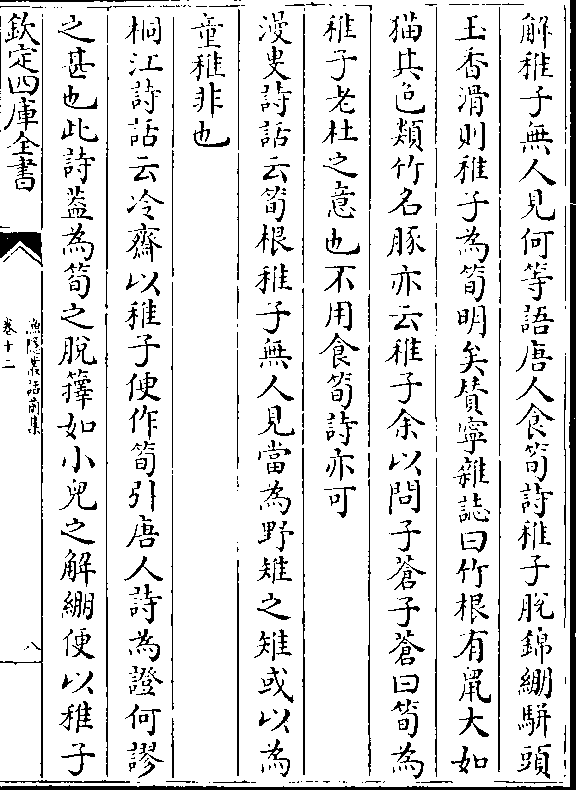 解稚子無人見何等語唐人食筍詩稚子脫錦綳駢頭
玉香滑則稚子為筍明矣賛寧雜誌曰竹根有鼠大如
猫其色類竹名豚亦云稚子余以問子蒼子蒼曰筍為
稚子老杜之意也不用食筍詩亦可
漫叟詩話云筍根稚子無人見當為野雉之雉或以為
童稚非也
桐江詩話云冷齋以稚子便作筍引唐人詩為證何謬
之甚也此詩葢為筍之脫籜如小兒之解綳便以稚子
欽定四庫全書
漁隱叢話前集
卷十二
八